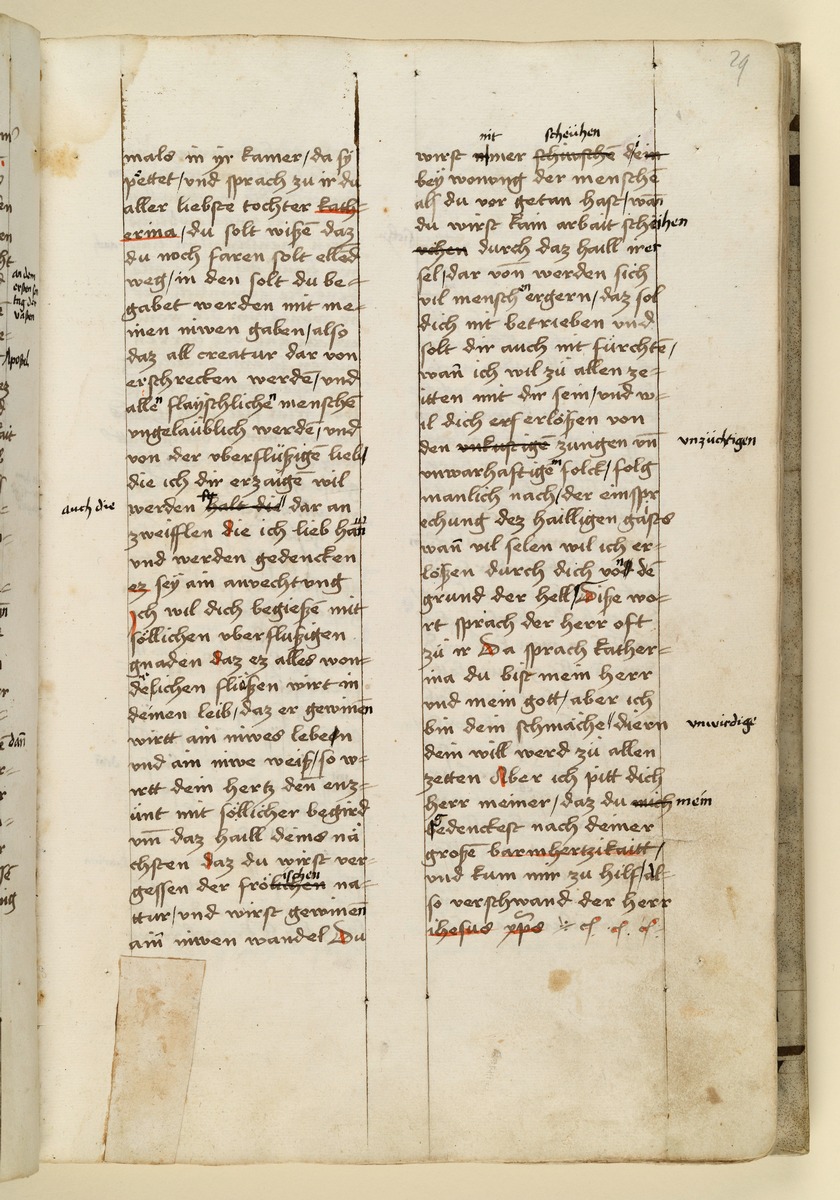 29
mals in yr kamer / da sy
pettet / und sprach zu ir du
aller liebste tochter kath=
erina / du solt wißen daz
du noch faren solt elled
weg / in den solt du be=
gabet werden mit me=
inen niwen gaben / also
daz all creatur dar von
erschrecken werde / und
allen flayschlichen mensche
ungelaublich werden / und
von der uberflußige lieb /
die ich dir erzaigen wil
auch die
werden halt die dar an
zweifflen die ich lieb han
und werden gedencken
ez sey ain anvechtung
Ich wil dich begieße mit
söllichen uberflußigen
gnaden daz ez alles won=
derlichen flüßen wirt in
deinen leib / daz er gewinen
wirtt ain niwes leben
und ain niwe weiß / so w=
irtt dein hertz den enz=
unt mit söllicher begird
um daz haill deins nä
chsten daz du wirst ver=
gessen der fröischen na=
ttur / und wirst gewinen
ain niwen wandel Du
nit scheühen
wirst nimer dein
bey wonung der mensche
als du vor getan hast / wan
du wirst kain arbait scheihen
durch daz haill irer
sel / dar von werden sich
vil menschen ergern / daz sol
dich nit betrieben und
solt dir auch nit fürchte /
wan ich wil zü allen ze=
itten mit dir sein / und w=
il dich erst erlößen von
den unkustige zungen un unzüchtigen
unwarhaftigen folck / folg
manlich nach / der einspr
echung dez hailligen gaists
wan vil selen wil ich er=
lößen durch dich von de
grund der hell / Diße wo=
rt sprach der herr oft
zü ir Da sprach kather=
ina du bist mein herr
und mein gott / aber ich
bin dein schmäche / diern unwirdige
dein will werd zü allen
zetten Aber ich pitt dich
herr meiner / daz du mich mein
gedenckest nach deiner
große barmhertzikaitt /
und kum mir zu hilf / Al=
so verschwand der herr
ihesus xps